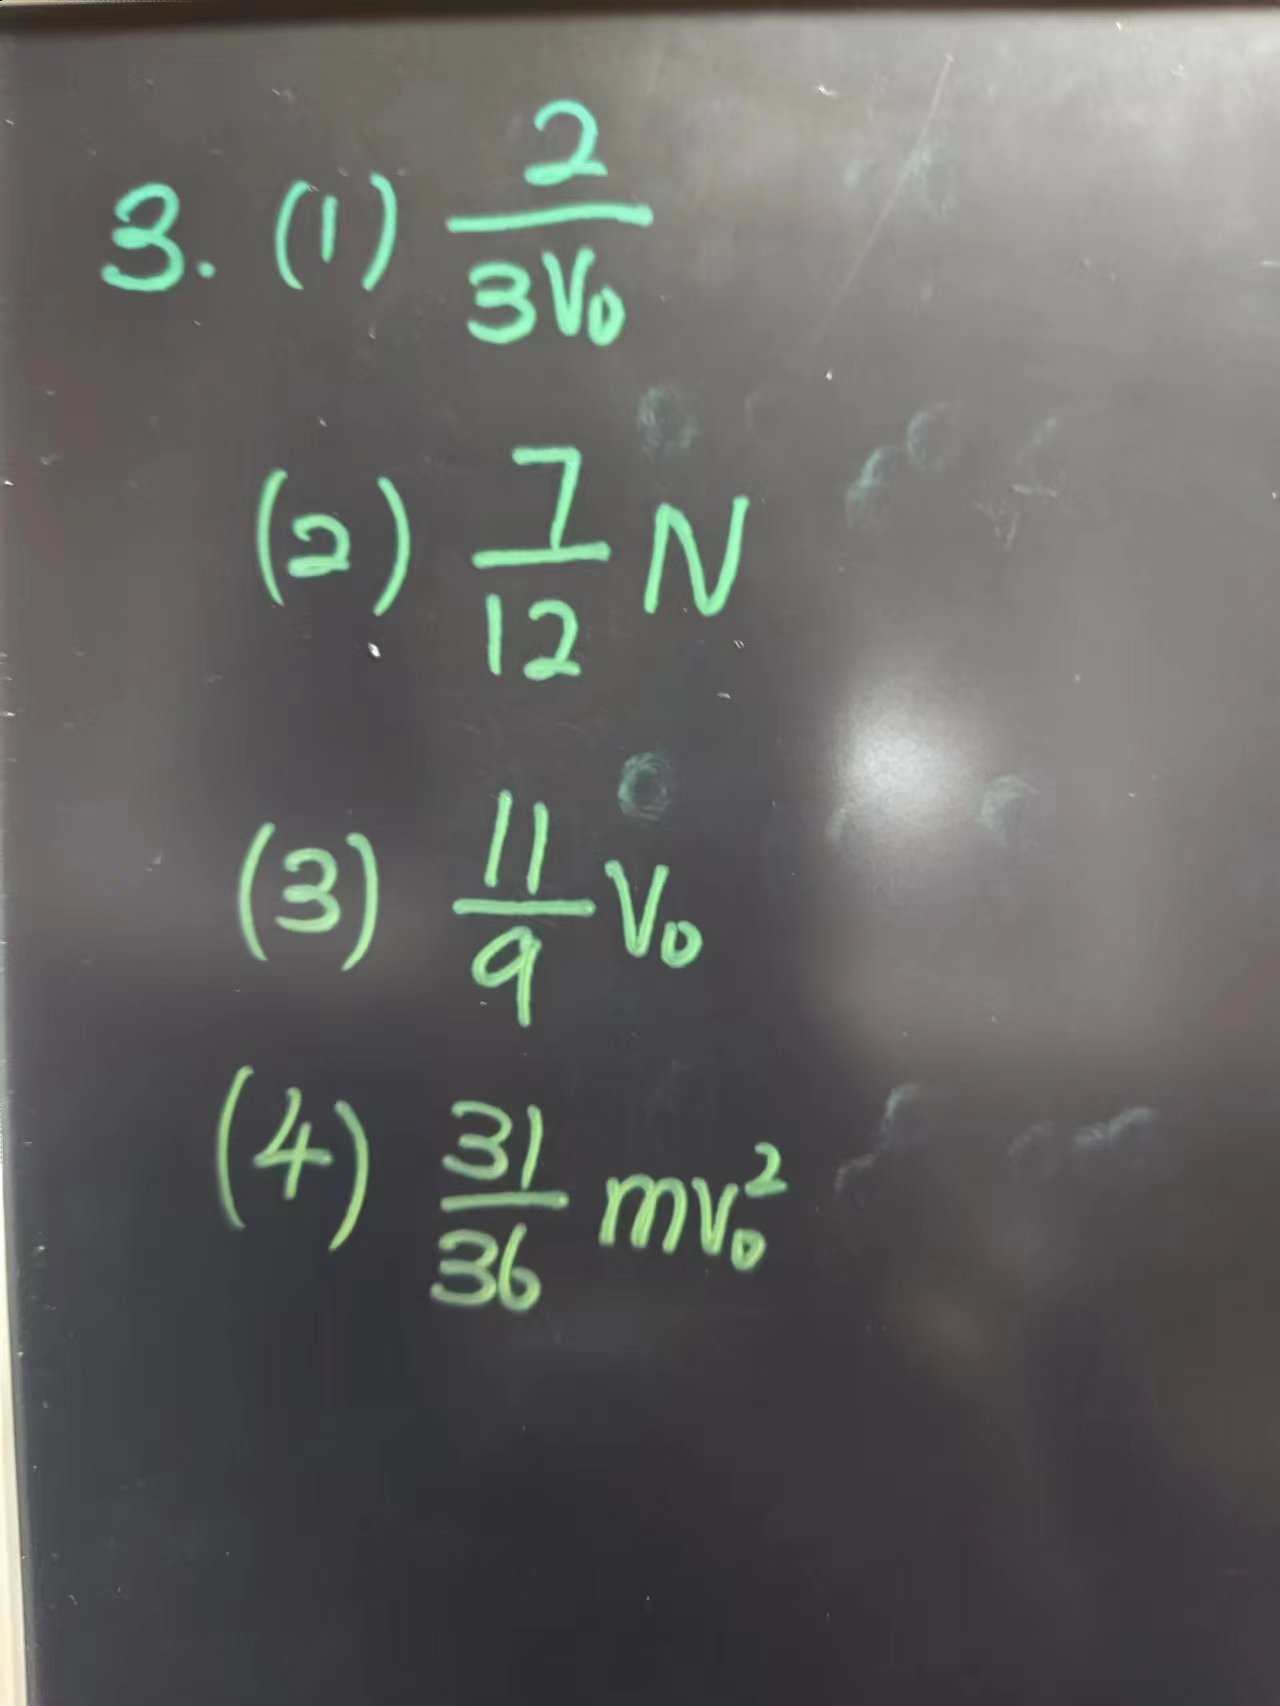 3. (1) 2/(3V₀)
(2) 7/12 N
(3) 11/9 V₀
(4) 31/36 mv₀²